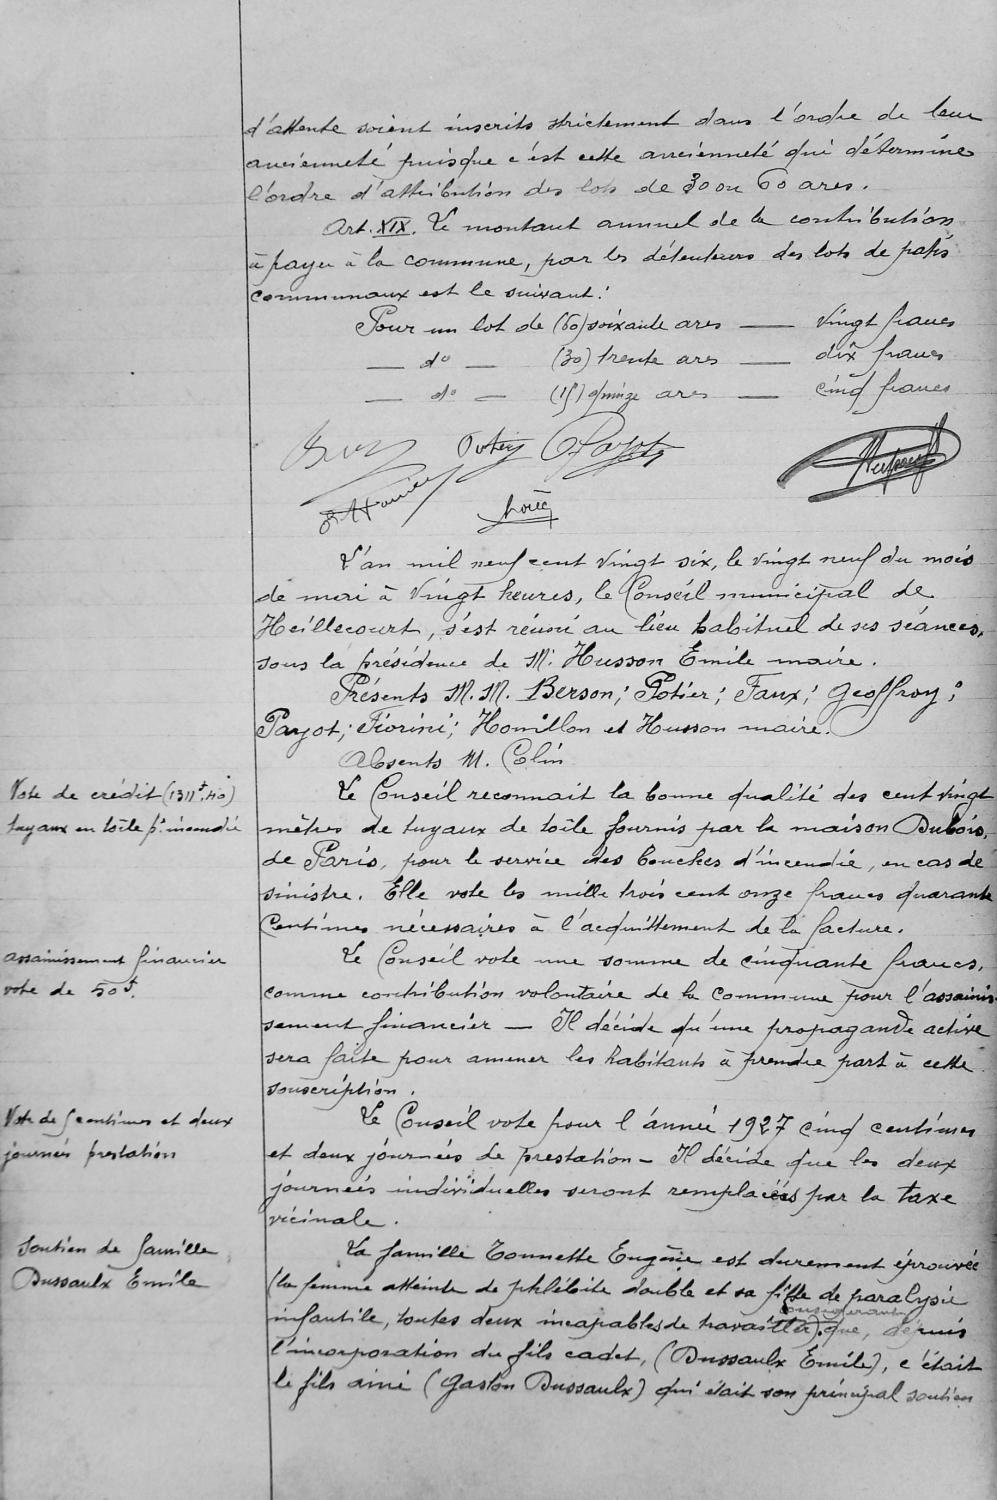 d'attente soient inscrits strictement dans l'ordre de leur
ancienneté puisque c'est cette ancienneté qui détermine
l'ordre d'attribution des lots de 30 ou 60 ares.
Art. XIX. Le montant annuel de la contribution
à payer à la commune, par les détenteurs des lots de patis
communaux est le suivant :
Pour un lot de (60) soixante ares — Vingt francs
— do — (30) trente ares — dix francs
— do — (15) quinze ares — cinq francs
Potier Payot
L'an mil neuf cent vingt six, le vingt neuf du mois
de mai à Vingt heures, le Conseil municipal de
Heillecourt, s'est réuni au lieu habituel de ses séances,
sous la présidence de M. Husson Emile maire.
Présents M.M. Berson; Potier; Faux; Geoffroy;
Payot; Fiorini; Homillon et Husson maire.
Absents M. Colin
Vote de crédit (1311f.40)
tuyaux en toile pr incendie
Le Conseil reconnait la bonne qualité des cent vingt
mètres de tuyaux de toile fournis par la maison Dubois,
de Paris, pour le service des bouches d'incendie, en cas de
sinistre. Elle vote les mille trois cent onze francs quarante
Centimes nécessaires à l'acquittement de la facture.
assainissement financier
vote de 50f.
Le Conseil vote une somme de cinquante francs,
comme contribution volontaire de la Commune pour l'assainis-
sement financier — Il décide qu'une propagande active
sera faite pour amener les habitants à prendre part à cette
souscription.
Vote de 5 centimes et deux
journées prestation
Le Conseil vote pour l'année 1927 cinq centimes
et deux journées de prestation — Il décide que les deux
journées individuelles seront remplacées par la taxe
vicinale.
Soutien de famille
Dussaulx Emile
La famille Tonnette Eugène est durement éprouvée
(la femme atteinte de phlébite double et sa fille de paralysie
infantile, toutes deux incapables de travailler). considérant que, depuis
l'incorporation du fils cadet, (Dussaulx Emile), c'était
le fils ainé (Gaston Dussaulx) qui était son principal soutien